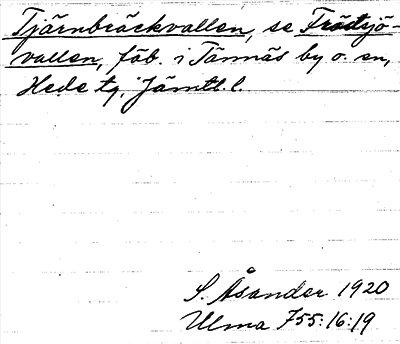 Tjärnbräckvallen, se Frödsjö-
vallen, fäb. i Tännäs by o. sn,
Hede tg, Jämtl. l.
S. Åsander 1920
Ulma 755:16:19